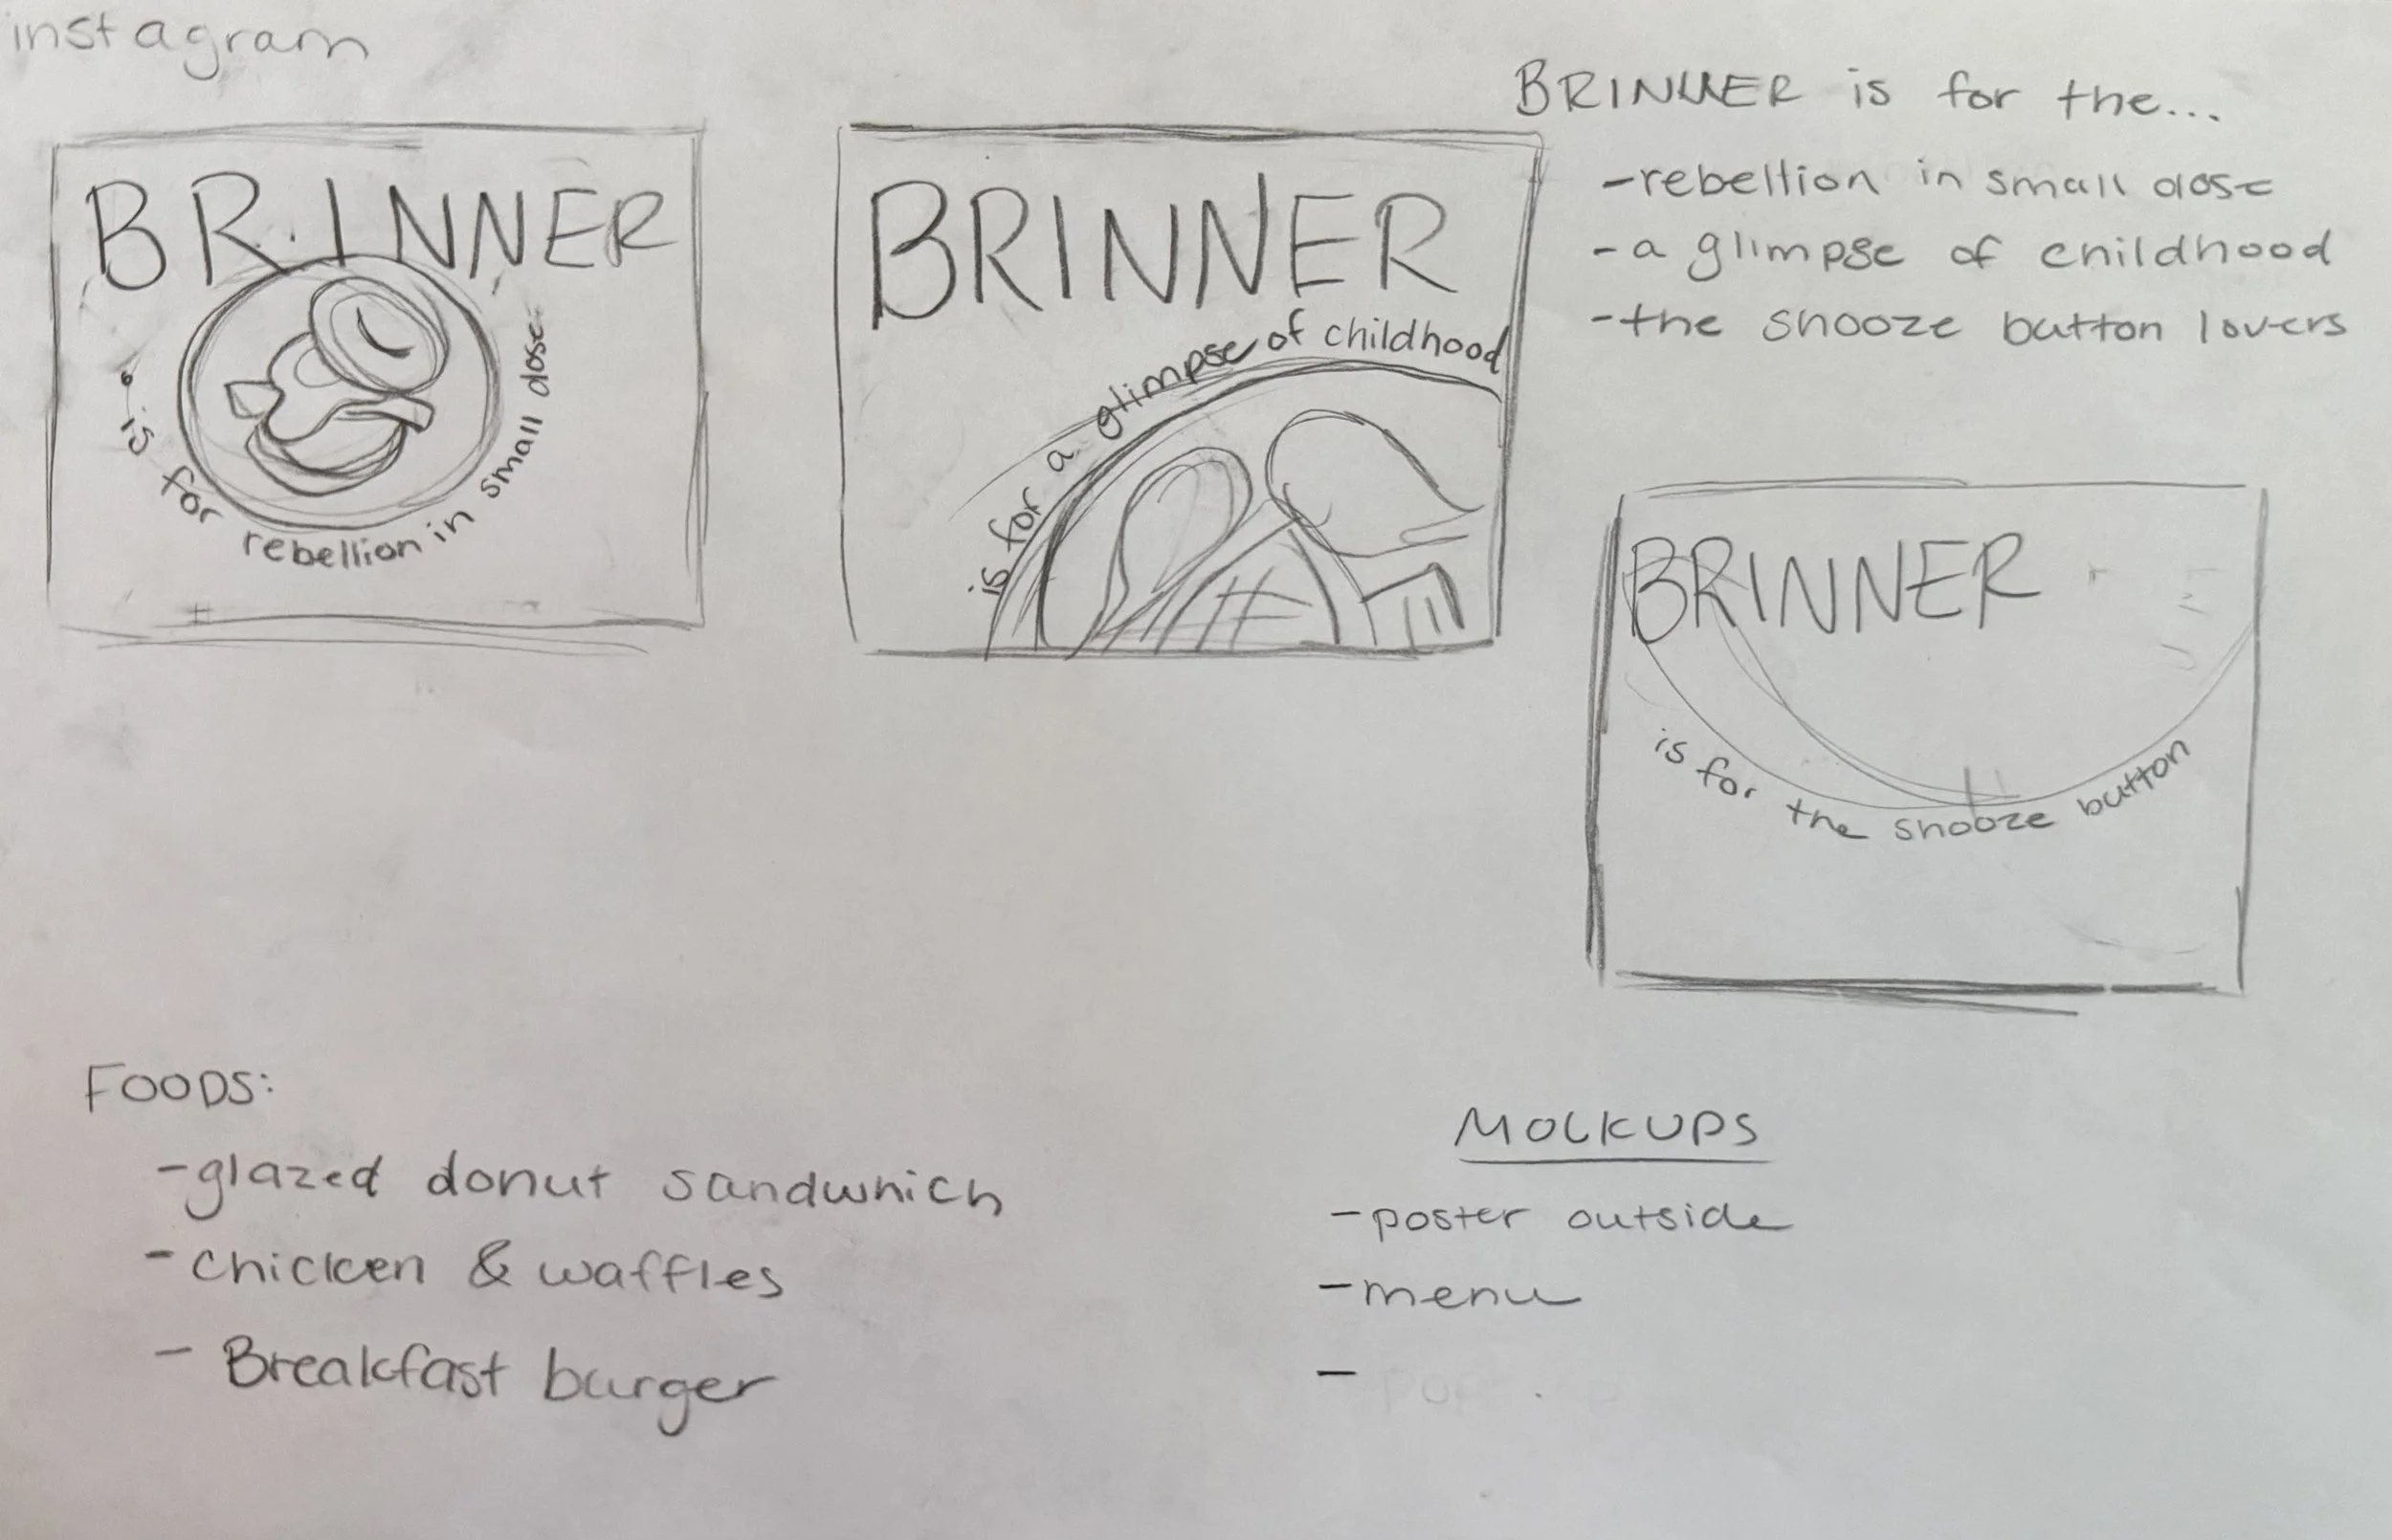 instagram
BRINNER
is for rebellion in small dose
BRINNER
is for a glimpse of childhood
BRINNER is for the...
-rebellion in small dose
-a glimpse of childhood
-the snooze button lovers
BRINNER
is for the snooze button
FOODS:
-glazed donut sandwhich
-chicken & waffles
- Breakfast burger
MOCKUPS
-poster outside
-menu
-